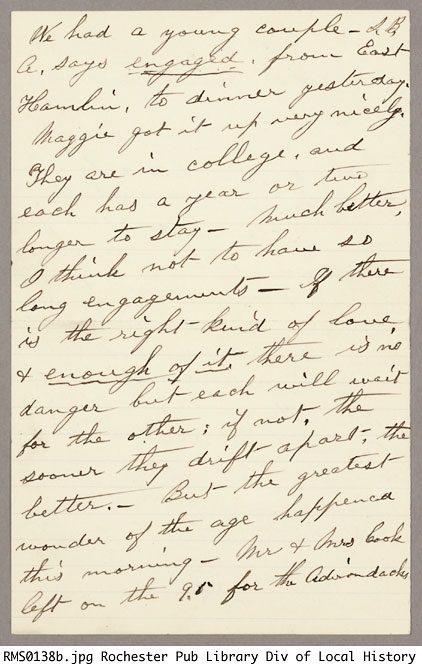 We had a young couple - S.B.
A. says engaged, from East
Hamlin, to dinner yesterday.
Maggie got it up very nicely.
They are in college, and
each has a year or two
longer to stay - Much better,
I think not to have so
long engagements - If there
is the right kind of love
& enough of it, there is no
danger but each will wait
for the other; if not, the
sooner they drift apart, the
better. - But the greatest
wonder of the age happened
this morning - Mr & Mrs Cook
left on the 9.5 for the Adirondacks
RMS0138b.jpg Rochester Pub Library Div of Local History